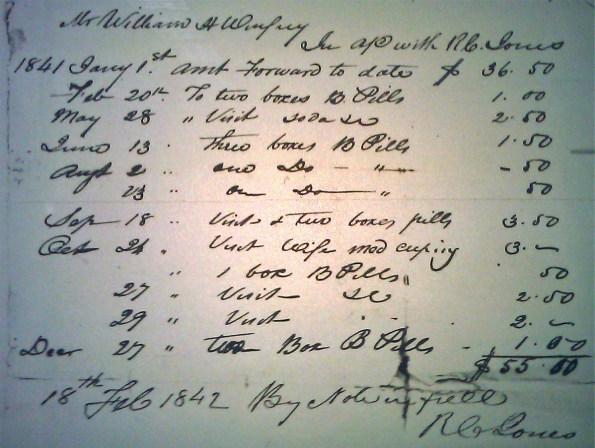 Mr William H Winfrey
In a/c with R.C. Jones
1841 Jany 1.st Amt Forward to date $ 36.50
Feb 20th To two boxes B. Pills 1.00
May 28 " Visit soda &c 2.50
June 13 " three boxes B Pills 1.50
Augt 2 " one Do — " — 50
23 " on Do — " 50
Sep 18 " Visit & two boxes pills 3.50
Oct 24 " Visit Wife med cuping 3. —
" 1 box B Pills " 50
27 " Visit &c 2.50
29 " Visit 2. —
Decr 27 " two Box B Pills - 1.00
$55.00
18th Feb 1842 By Note in full
R C Jones